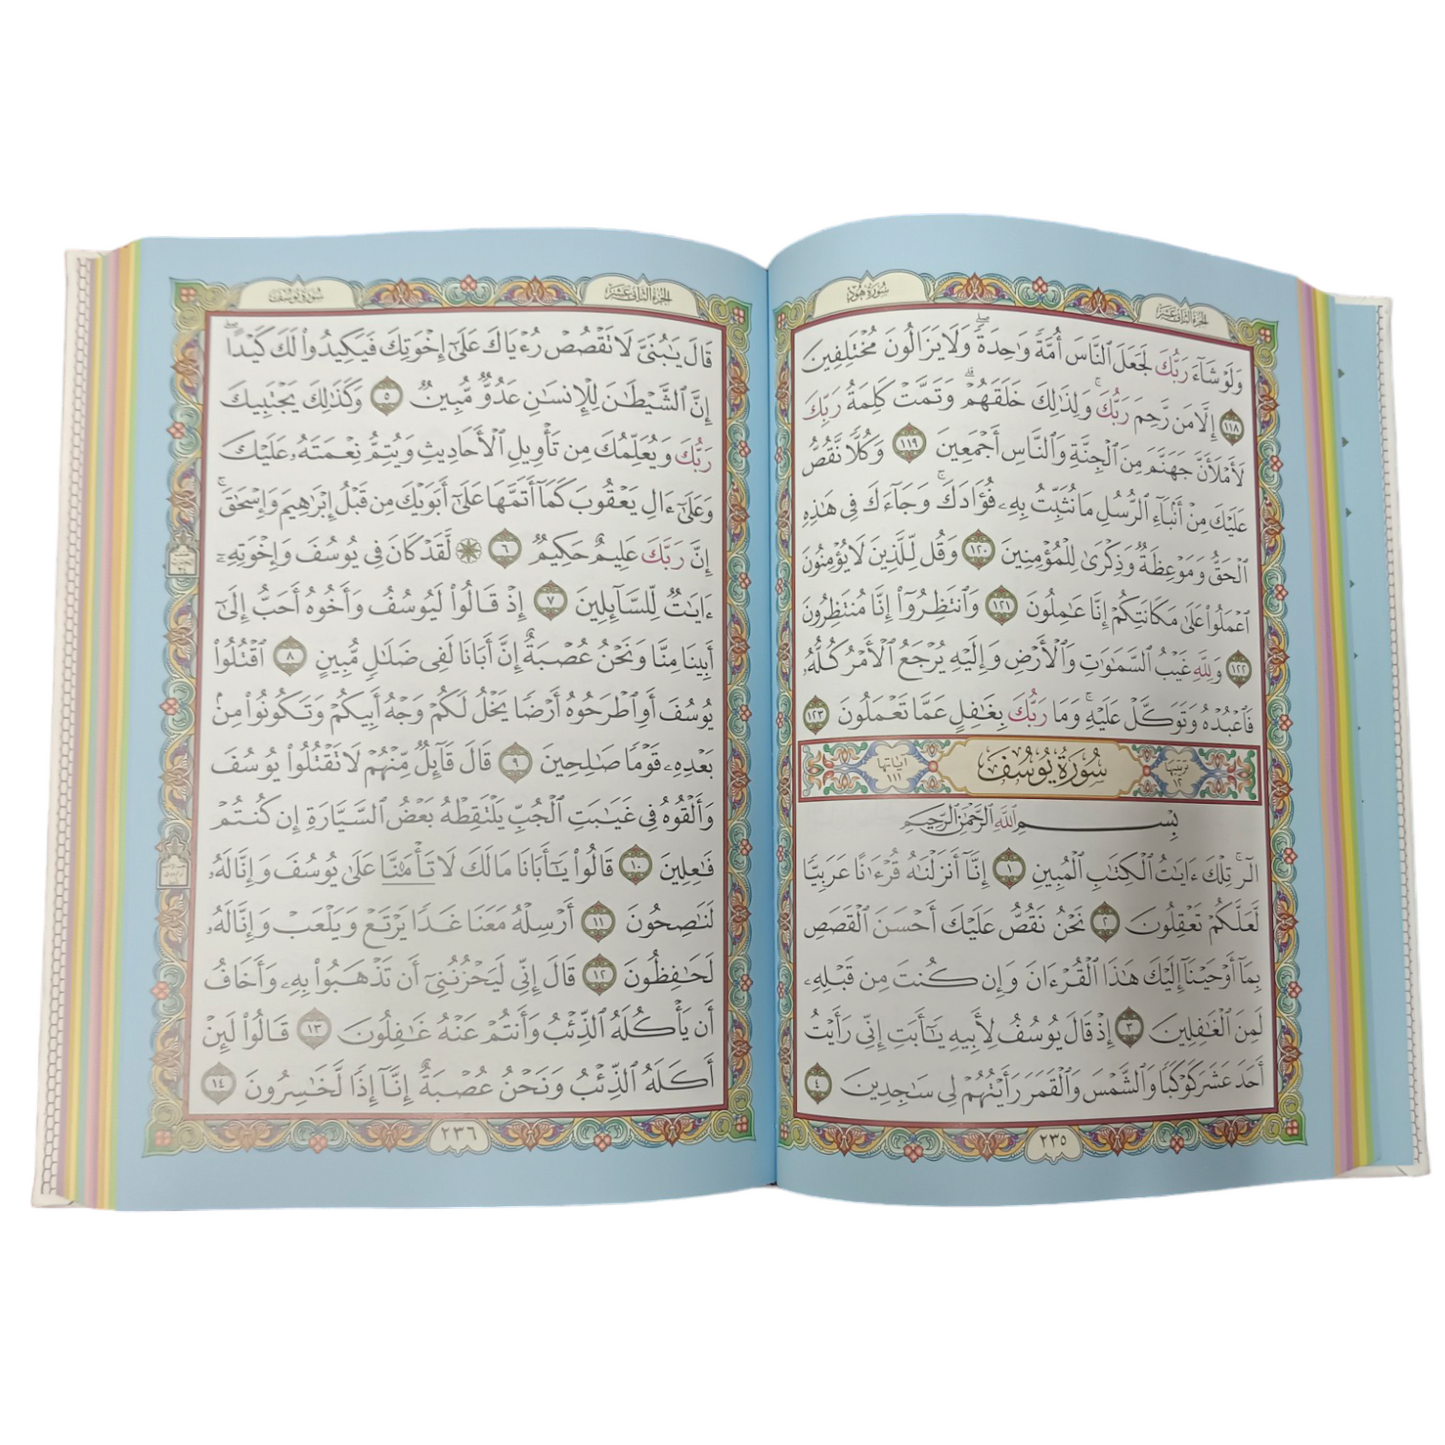 سورة هود
الجزء الثاني عشر
وَلَوْ شَآءَ رَبُّكَ لَجَعَلَ ٱلنَّاسَ أُمَّةً وَٰحِدَةً ۖ وَلَا يَزَالُونَ مُخْتَلِفِينَ
١١٨ إِلَّا مَن رَّحِمَ رَبُّكَ ۚ وَلِذَٰلِكَ خَلَقَهُمْ ۗ وَتَمَّتْ كَلِمَةُ رَبِّكَ
لَأَمْلَأَنَّ جَهَنَّمَ مِنَ ٱلْجِنَّةِ وَٱلنَّاسِ أَجْمَعِينَ ١١٩ وَكُلًّا نَّقُصُّ
عَلَيْكَ مِنْ أَنۢبَآءِ ٱلرُّسُلِ مَا نُثَبِّتُ بِهِۦ فُؤَادَكَ ۚ وَجَآءَكَ فِى هَٰذِهِ
ٱلْحَقُّ وَمَوْعِظَةٌ وَذِكْرَىٰ لِلْمُؤْمِنِينَ ١٢٠ وَقُل لِّلَّذِينَ لَا يُؤْمِنُونَ
ٱعْمَلُوا۟ عَلَىٰ مَكَانَتِكُمْ إِنَّا عَٰمِلُونَ ١٢١ وَٱنتَظِرُوٓا۟ إِنَّا مُنتَظِرُونَ
١٢٢ وَلِلَّهِ غَيْبُ ٱلسَّمَٰوَٰتِ وَٱلْأَرْضِ وَإِلَيْهِ يُرْجَعُ ٱلْأَمْرُ كُلُّهُۥ
فَٱعْبُدْهُ وَتَوَكَّلْ عَلَيْهِ ۚ وَمَا رَبُّكَ بِغَٰفِلٍ عَمَّا تَعْمَلُونَ ١٢٣
ترتيبها ١٢ سُورَةُ يُوسُفَ آياتها ١١١
بِسْمِ ٱللَّهِ ٱلرَّحْمَٰنِ ٱلرَّحِيمِ
الٓر ۚ تِلْكَ ءَايَٰتُ ٱلْكِتَٰبِ ٱلْمُبِينِ ١ إِنَّآ أَنزَلْنَٰهُ قُرْءَٰنًا عَرَبِيًّا
لَّعَلَّكُمْ تَعْقِلُونَ ٢ نَحْنُ نَقُصُّ عَلَيْكَ أَحْسَنَ ٱلْقَصَصِ
بِمَآ أَوْحَيْنَآ إِلَيْكَ هَٰذَا ٱلْقُرْءَانَ وَإِن كُنتَ مِن قَبْلِهِۦ
لَمِنَ ٱلْغَٰفِلِينَ ٣ إِذْ قَالَ يُوسُفُ لِأَبِيهِ يَٰٓأَبَتِ إِنِّى رَأَيْتُ
أَحَدَ عَشَرَ كَوْكَبًا وَٱلشَّمْسَ وَٱلْقَمَرَ رَأَيْتُهُمْ لِى سَٰجِدِينَ ٤
٢٣٥
الجزء الثاني عشر
سورة يوسف
قَالَ يَٰبُنَىَّ لَا تَقْصُصْ رُءْيَاكَ عَلَىٰٓ إِخْوَتِكَ فَيَكِيدُوا۟ لَكَ كَيْدًا ۖ
إِنَّ ٱلشَّيْطَٰنَ لِلْإِنسَٰنِ عَدُوٌّ مُّبِينٌ ٥ وَكَذَٰلِكَ يَجْتَبِيكَ
رَبُّكَ وَيُعَلِّمُكَ مِن تَأْوِيلِ ٱلْأَحَادِيثِ وَيُتِمُّ نِعْمَتَهُۥ عَلَيْكَ
وَعَلَىٰٓ ءَالِ يَعْقُوبَ كَمَآ أَتَمَّهَا عَلَىٰٓ أَبَوَيْكَ مِن قَبْلُ إِبْرَٰهِيمَ وَإِسْحَٰقَ ۚ
إِنَّ رَبَّكَ عَلِيمٌ حَكِيمٌ ٦ ۞ لَّقَدْ كَانَ فِى يُوسُفَ وَإِخْوَتِهِۦٓ
ءَايَٰتٌ لِّلسَّآئِلِينَ ٧ إِذْ قَالُوا۟ لَيُوسُفُ وَأَخُوهُ أَحَبُّ إِلَىٰٓ
أَبِينَا مِنَّا وَنَحْنُ عُصْبَةٌ إِنَّ أَبَانَا لَفِى ضَلَٰلٍ مُّبِينٍ ٨ ٱقْتُلُوا۟
يُوسُفَ أَوِ ٱطْرَحُوهُ أَرْضًا يَخْلُ لَكُمْ وَجْهُ أَبِيكُمْ وَتَكُونُوا۟ مِنۢ
بَعْدِهِۦ قَوْمًا صَٰلِحِينَ ٩ قَالَ قَآئِلٌ مِّنْهُمْ لَا تَقْتُلُوا۟ يُوسُفَ
وَأَلْقُوهُ فِى غَيَٰبَتِ ٱلْجُبِّ يَلْتَقِطْهُ بَعْضُ ٱلسَّيَّارَةِ إِن كُنتُمْ
فَٰعِلِينَ ١٠ قَالُوا۟ يَٰٓأَبَانَا مَا لَكَ لَا تَأْمَ۫نَّا عَلَىٰ يُوسُفَ وَإِنَّا لَهُۥ
لَنَٰصِحُونَ ١١ أَرْسِلْهُ مَعَنَا غَدًا يَرْتَعْ وَيَلْعَبْ وَإِنَّا لَهُۥ
لَحَٰفِظُونَ ١٢ قَالَ إِنِّى لَيَحْزُنُنِىٓ أَن تَذْهَبُوا۟ بِهِۦ وَأَخَافُ
أَن يَأْكُلَهُ ٱلذِّئْبُ وَأَنتُمْ عَنْهُ غَٰفِلُونَ ١٣ قَالُوا۟ لَئِنْ
أَكَلَهُ ٱلذِّئْبُ وَنَحْنُ عُصْبَةٌ إِنَّآ إِذًا لَّخَٰسِرُونَ ١٤
٢٣٦